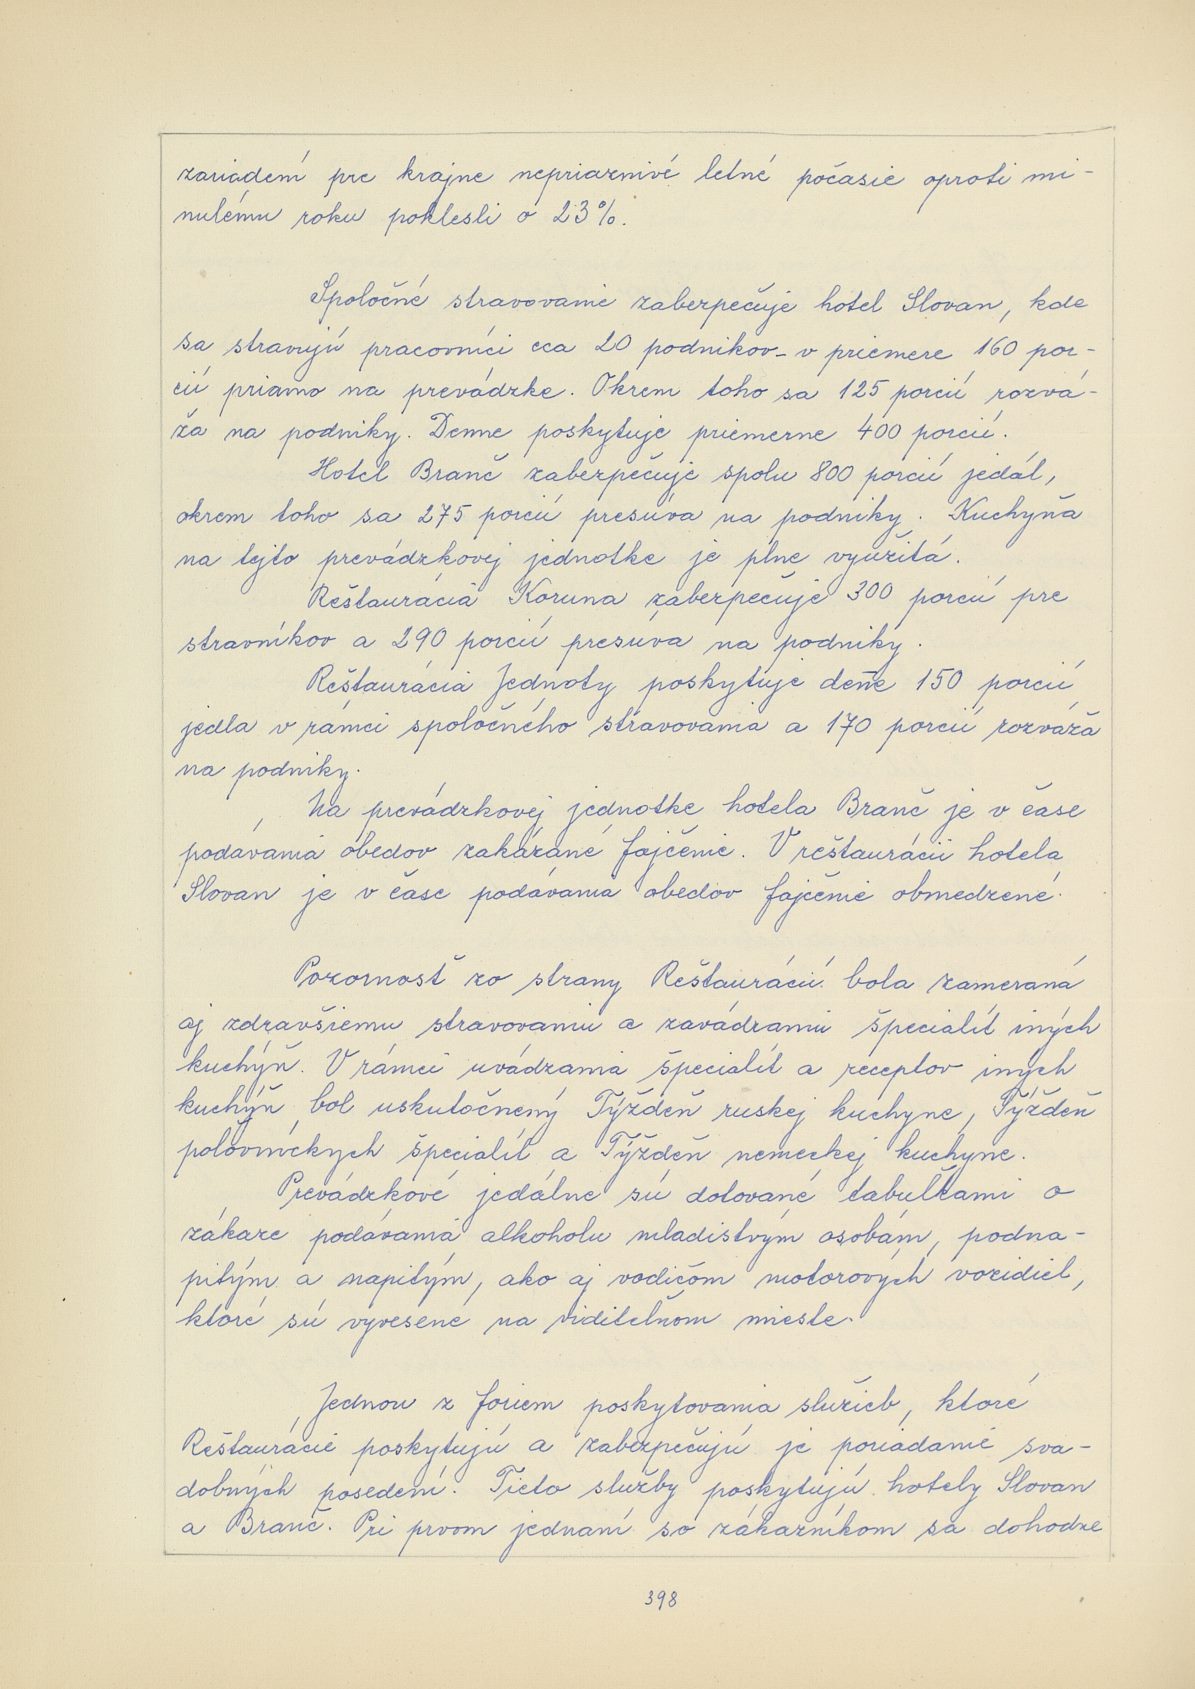 zariadení pre krajne nepriaznivé letné počasie oproti mi-
nulému roku poklesli o 23%.
Spoločné stravovanie zabezpečuje hotel Slovan, kde
sa stravujú pracovníci cca 20 podnikov - v priemere 160 por-
cií priamo na prevádzke. Okrem toho sa 125 porcií rozvá-
ža na podniky. Denne poskytuje priemerne 400 porcií.
Hotel Branč zabezpečuje spolu 800 porcií jedál,
okrem toho sa 275 porcií presúva na podniky. Kuchyňa
na tejto prevádzkovej jednotke je plne využitá.
Reštaurácia Koruna zabezpečuje 300 porcií pre
stravníkov a 290 porcií presúva na podniky.
Reštaurácia Jednoty poskytuje deňe 150 porcií
jedla v rámci spoločného stravovania a 170 porcií rozváža
na podniky.
Na prevádzkovej jednotke hotela Branč je v čase
podávania obedov zakázané fajčenie. V reštaurácii hotela
Slovan je v čase podávania obedov fajčenie obmedzené.
Pozornosť zo strany Reštaurácií bola zameraná
aj zdravšiemu stravovaniu a zavádzaniu špecialít iných
kuchýň. V rámci uvádzania špecialít a receptov iných
kuchýň bol uskutočnený Týždeň ruskej kuchyne, Týždeň
poľovníckych špecialít a Týždeň nemeckej kuchyne.
Prevádzkové jedálne sú dotované tabuľkami o
zákaze podávania alkoholu mladistvým osobám, podna-
pitým a napitým, ako aj vodičom motorových vozidiel,
ktoré sú vyvesené na viditeľnom mieste.
Jednou z foriem poskytovania služieb, ktoré
Reštaurácie poskytujú a zabezpečujú je poriadanie sva-
dobných posedení. Tieto služby poskytujú hotely Slovan
a Branč. Pri prvom jednaní so zákazníkom sa dohodne
398